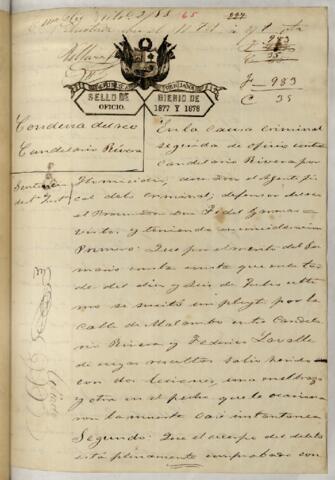 65
227
F - 983
C 35
F - 983
C 35
REPUBLICA PERUANA
SELLO DE OFICIO.
BIENIO DE 1877 Y 1878
Condena del reo
Candelario Rivera
Sentencia
del Inf.
En la causa criminal
seguida de oficio contra
Candelario Rivera por
Homicidio, el Agente fis
cal del criminal; defensor del reo
el Procurador Don Fidel
vistos; y teniendo en consideracion
Primero: Que por el mérito del Su
mario consta que en la tar
de del dia Seis de Julio ulti
mo se suscitó un pleyto por la
calle de Malambo entre Candela
rio Rivera y Federico Lavalle
de cuyas resultas salió herido
con dos lesiones, una en el brazo
y otra en el pecho que le ocasiona
ron la muerte casi instantanea
Segundo: Que el cuerpo del delito
está plenamente comprobado con